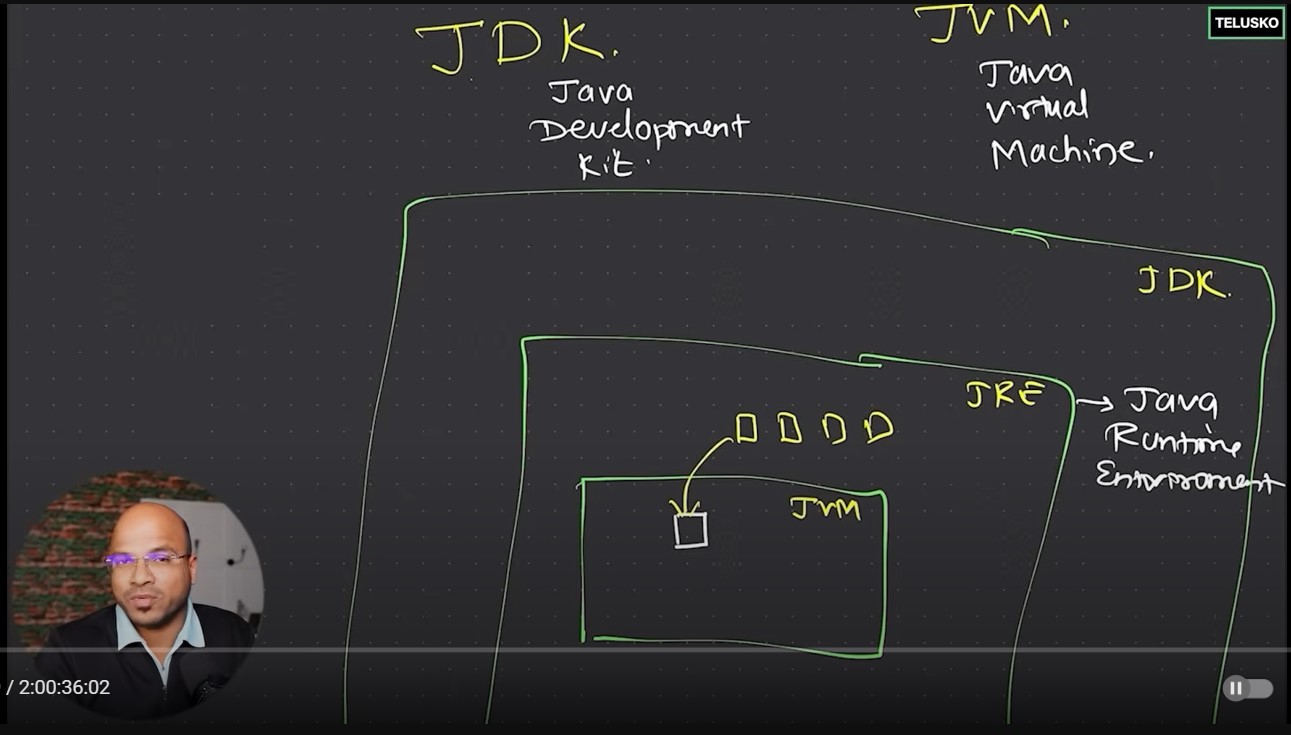 JDK.
Java
Development
Kit.
JVM.
Java
Virtual
Machine.
TELUSKO
JDK.
JRE
→ Java
Runtime
JVM
/ 2:00:36:02